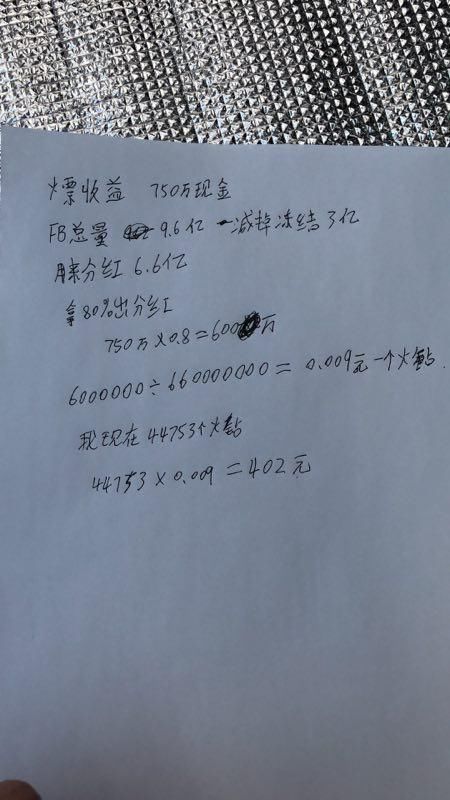 火票收益 750万现金
FB总量 9.6亿 减掉冻结3亿
剩余分红 6.6亿
拿80%出分红
750万×0.8=600万
6000000÷660000000=0.009元一个火钻.
我现在44753个火钻
44753×0.009=402元